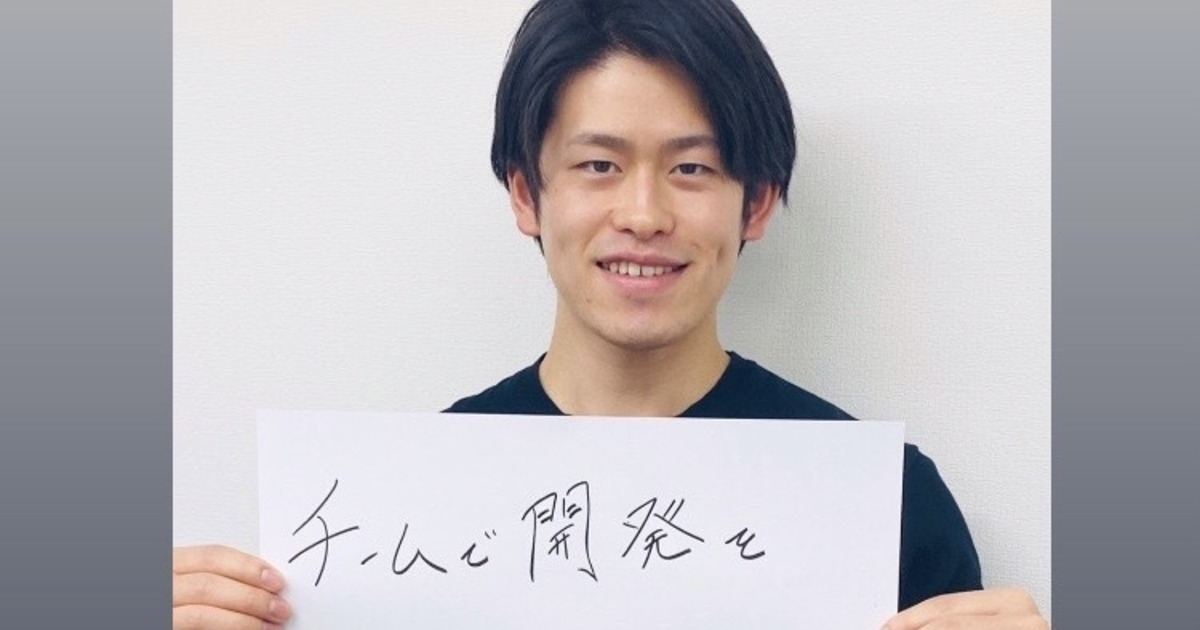 チームで開発を